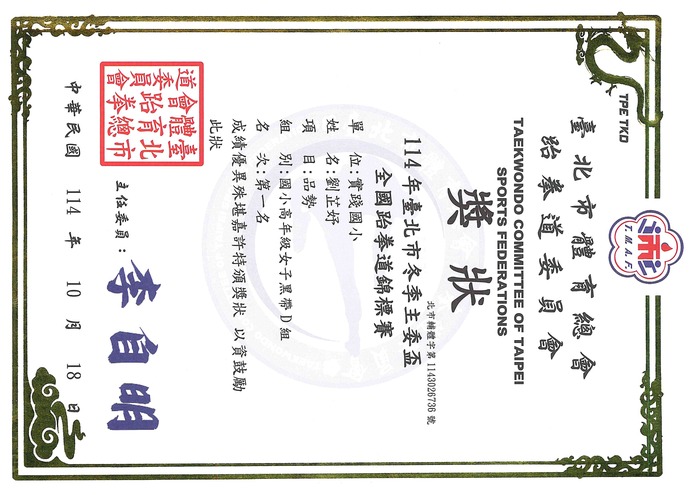 TPE TKD
T.M.A.F.
臺北市體育總會
跆拳道委員會
TAEKWONDO COMMITTEE OF TAIPEI
SPORTS FEDERATIONS
獎狀
北市輔體字第1143026736號
114年臺北市冬季主委盃
全國跆拳道錦標賽
單 位:實踐國小
姓 名:劉芷妤
項 目:品勢
組 別:國小高年級女子黑帶D組
名 次:第一名
成績優異殊堪嘉許特頒獎狀 以資鼓勵
此狀
主任委員:李自明
臺北市體育總會跆拳道委員會
中華民國 114 年 10 月 18 日